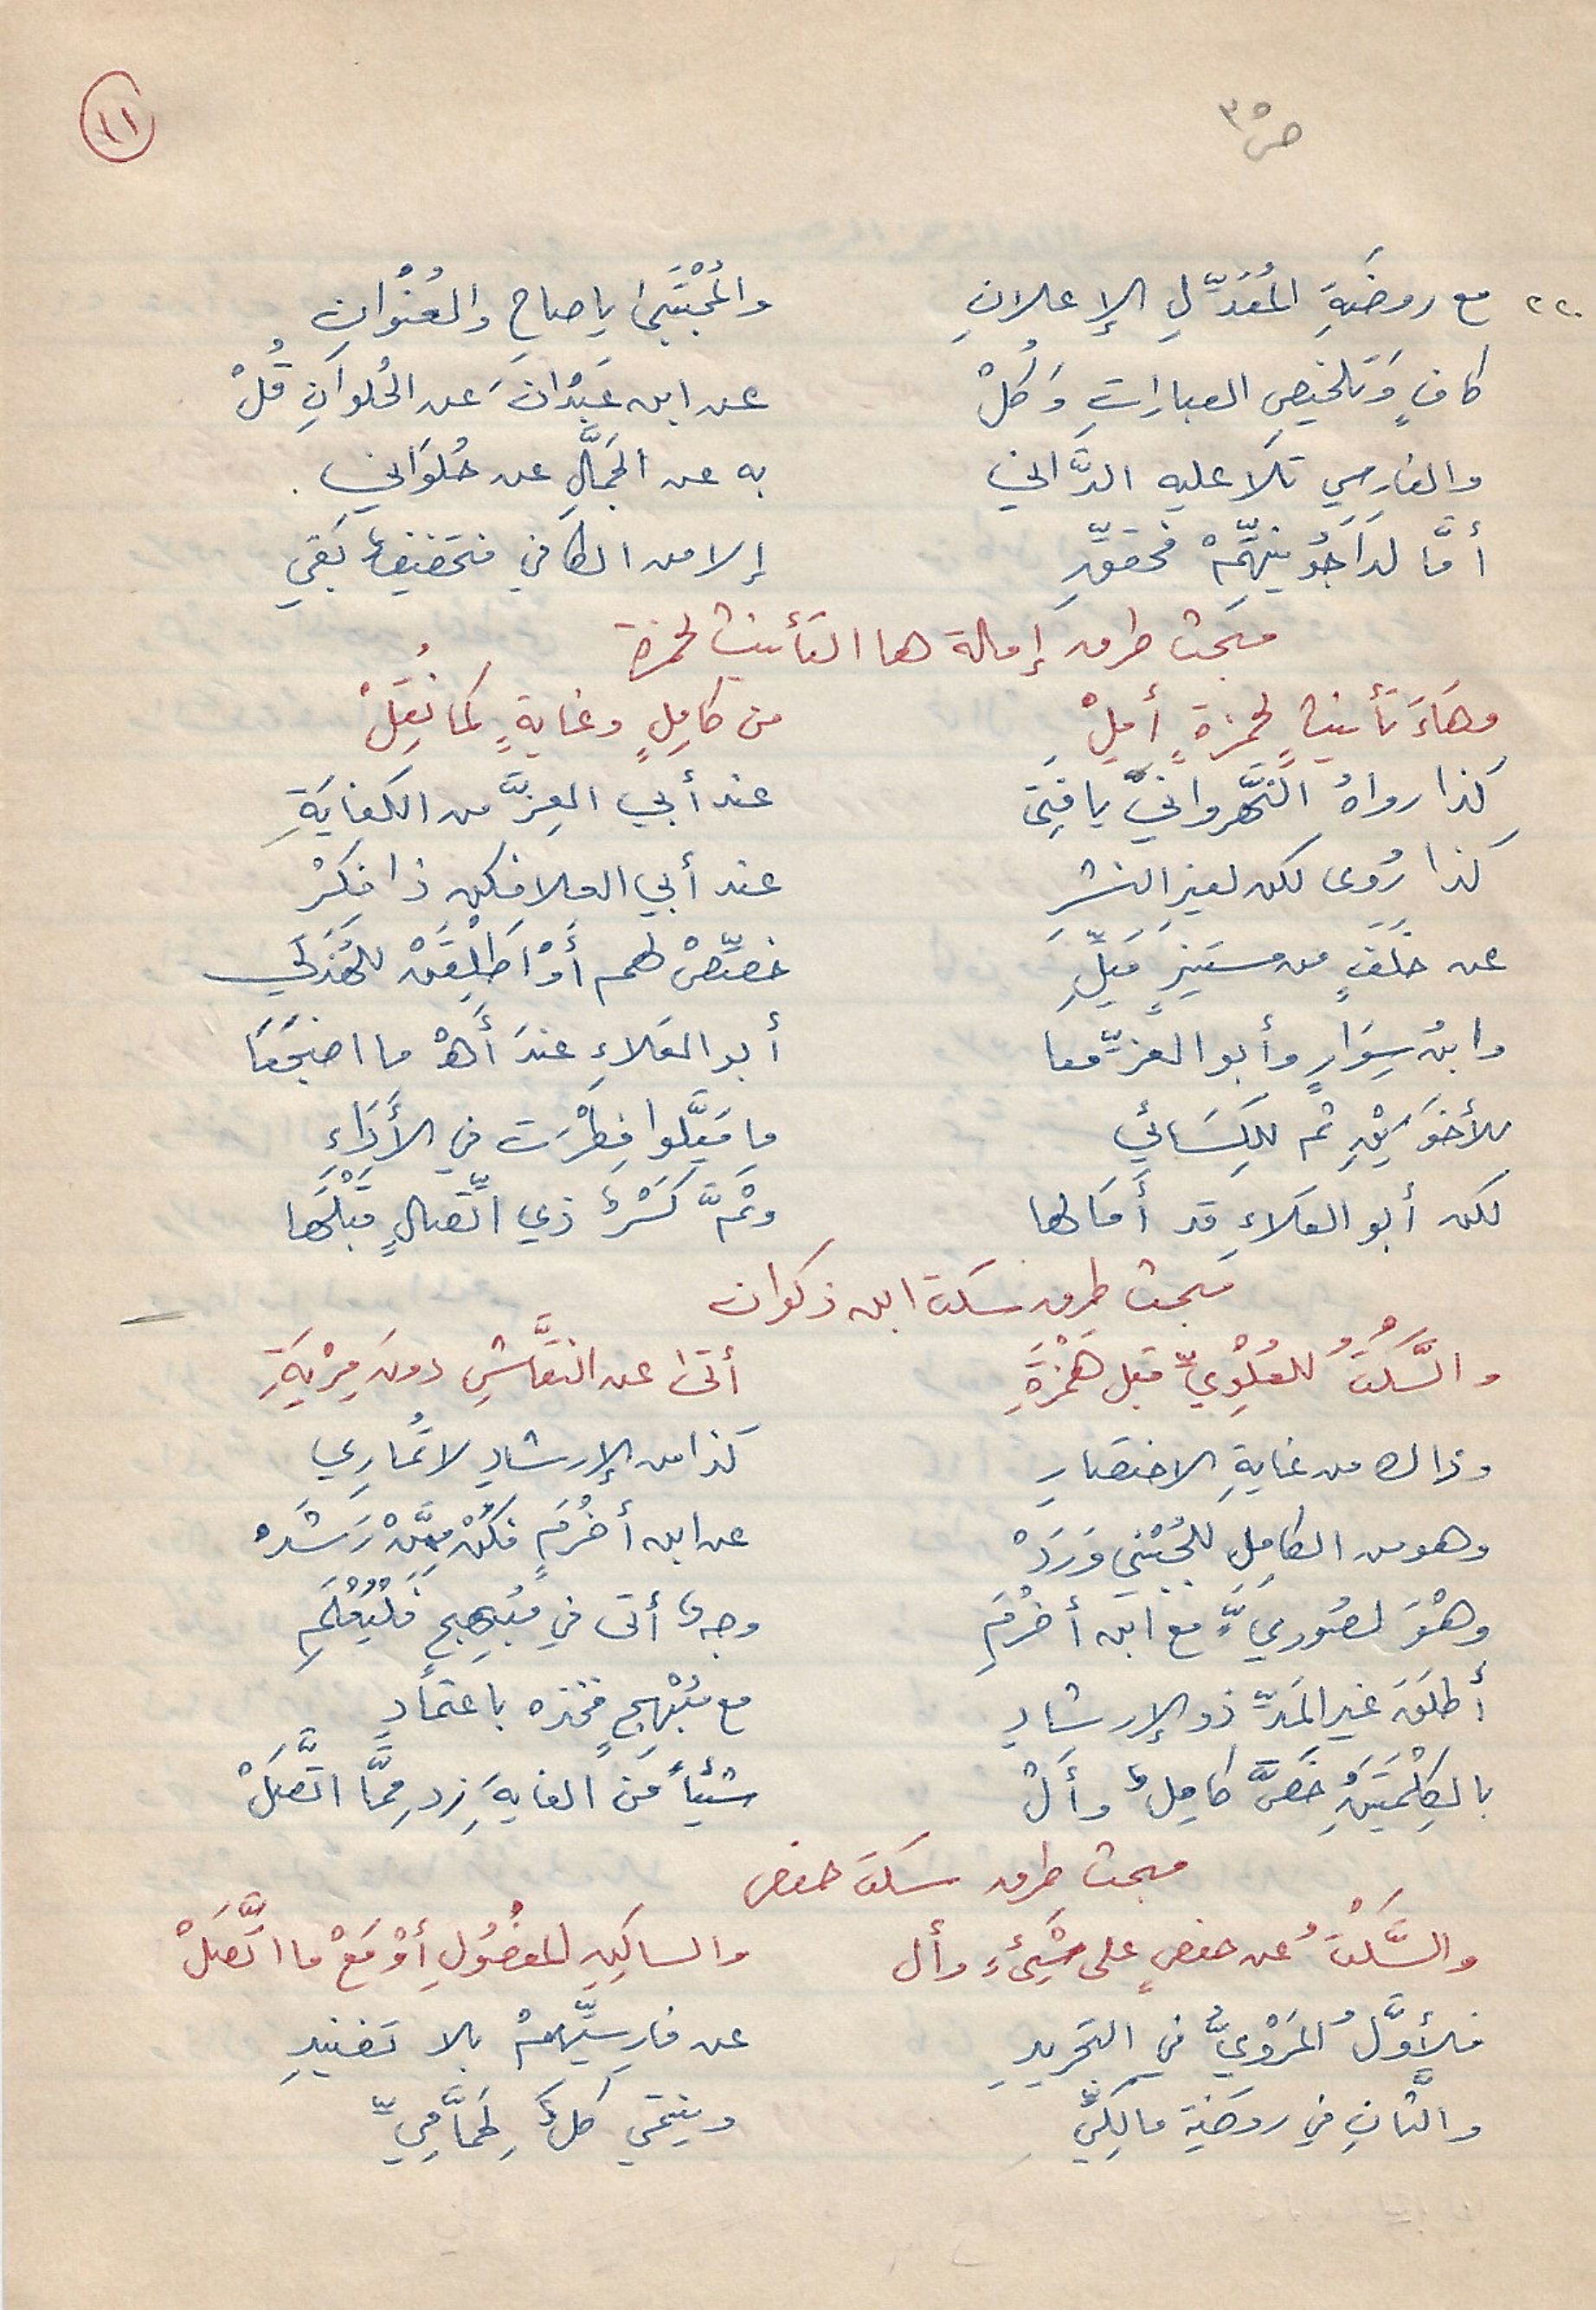 ص ٣٥
١١
٢٢٠ مع روضَةِ المُعَدِّلِ الإعلانِ والمُجْتَبَىٰ ياصاحِ والعُنْوانِ
كافٍ وَتلخيصِ العباراتِ وَكُلْ عن ابن عَبْدَانَ عن الحُلوَانِ قُلْ
والفارسي تَلَا عليه الدَّاني به عن الجَمَّالِ عن حُلوَاني .
أمَّا لدَاجُونيِّهِمْ فحققِ إلا من الكافي فتخفيفٌ بَقي
مبحث طرق إمالة ها التأنيث لحمزة
وهَاءَ تأنيثٍ لحمزةٍ أَمِلْ من كامِلٍ وغايةٍ كما نُقِلْ
كذا رواهُ النَّهرواني يا فتى عند أبي العِزَّ من الكفايَةِ
كذا رُوى لكن لغيرِ النشرِ عند أبي العلا فكن ذا فِكْرْ
عن خَلَفٍ من مستنيرٍ مَيِّلِ خصِّصْ لهم أَوْ اَطْلِقَنْ للهُذَلي
وابنُ سِوَارٍ وأبو العزِّ معا أبو العَلاءِ عندَ أَهْ ما اضجَعَا
للأخوَيْنِ ثم للكِسَائي ما مَيَّلوا فِطْرَت في الأَدَاءِ
لكن أبو العَلاءِ قد أَمَالها وثَمَّ كَسْرٌ ذي اتِّصالٍ قَبْلَها
مبحث طرق سكت ابن ذكوان
والسَّكْتُ للعُلْوِيِّ قبل هَمْزَةِ أتىٰ عن النقَّاشِ دونَ مِرْيَةِ
وذاك من غايةِ الاختصارِ كذا من الإرشادِ لا تُمَارِي
وهو من الكامِلِ للجُبْني وَرَدْ عن ابن أخْرُمٍ فكُنْ مِمَّنْ رَشَدْ
وهْوَ لصُوريٍّ مع ابن أخْرُمِ وجهٌ أتى في مُبهِجٍ فَلْيُعْلَمِ
أطلقَ غيرَ المَدِّ ذو الإرشادِ مع مُبْهِجٍ فخذه باعتمادِ
بالكِلْمَتَيْنِ خَصَّ كامِلٌ وأَلْ شيئاً مَنَ الغايةِ زد مِمَّا اتَّصَلْ
مبحث طرق سكت حفص
والسَّكْتُ عن حفصٍ على شَيْءٍ وأل والساكِنِ المفصُولِ أوْ مَعْ ما اتَّصَلْ
فلأوَّلُ المَرْوِيُّ في التجريدِ عن فارِسِيِّهِمْ بلا تفنيدِ
والثَّانِ في روضَةِ مالِكيِّ وينتمي كلٌّ لِحَمَّاميِّ